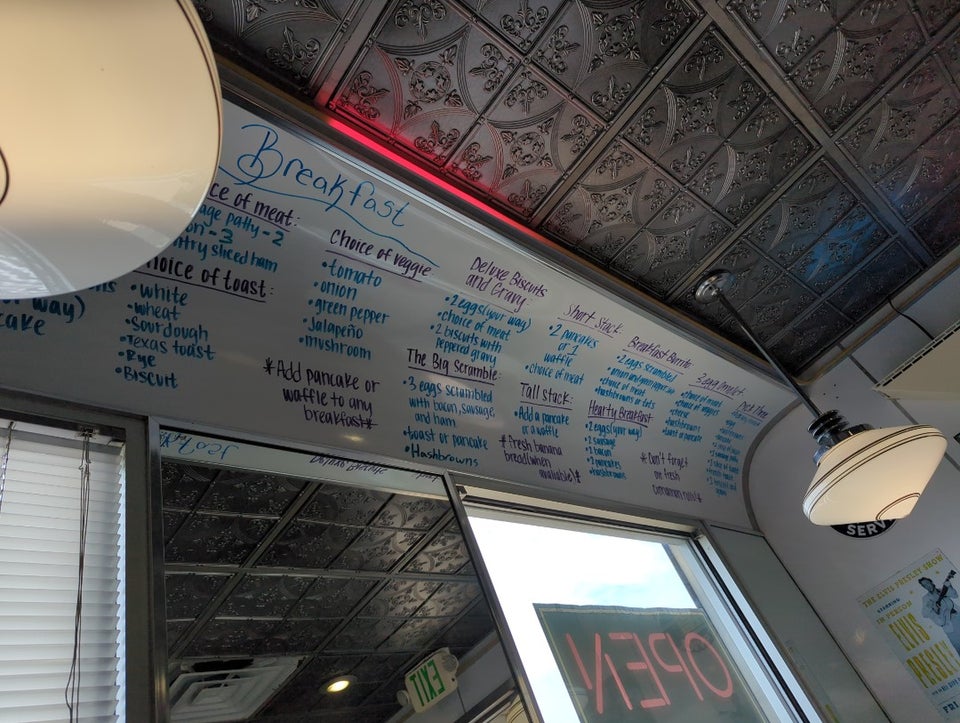 Breakfast
ce of meat:
age patty = 2
on = 3
ntry sliced ham
hoice of toast:
• white
• wheat
• Sourdough
• Texas toast
• Rye
• Biscuit
your way)
cake
*Add pancake or
waffle to any
breakfast*
Choice of veggie
• tomato
• onion
• green pepper
• Jalapeño
• mushroom
Deluxe Biscuits
and Gravy:
• 2 eggs (your way)
• choice of meat
• 2 biscuits with
peppered gravy
The Big Scramble:
• 3 eggs scrambled
with bacon, sausage,
and ham
• toast or pancake
• Hashbrowns
Short Stack:
• 2 pancakes
or 1
waffle
• choice of meat
Tall stack:
• Add a pancake
or a waffle
*fresh banana
bread (when
available)*
Breakfast Burrito
• 2 eggs scrambled
• choice of meat
Hearty Breakfast
• 2 eggs (your way)
• 2 sausage
• 2 bacon
• 2 pancakes
• hashbrowns
3 egg omelet
• choice of meat
• choice of veggies
• cheese
• hashbrowns
• toast or pancake
*Don't forget
our fresh
Cinnamon rolls*
OPEN
EXIT
SERV
THE ELVIS PRESLEY SHOW
STARRING
IN PERSON
ELVIS
PRESLEY
FRI